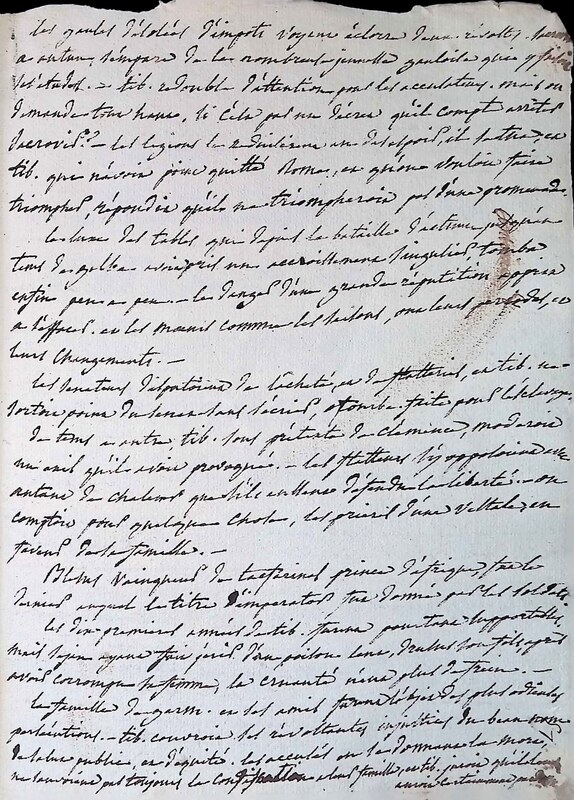 les gaules désolées d'impots voyent éclore deux révoltes. sacrovir
a autun s'empare de la nombreuse jeunesse gauloise qui y faisoit
ses études. — tib. redouble d'attention pour les accusateurs. mais on
demande tout haut, si c'est par un décret qu'il compte arrêter
sacrovir? — les legions le réduisirent au desespoir, il se tua, et
tib. qui n'avoit point quitté Rome, et qu'on vouloit faire
triompher, répondit qu'il ne triompheroit pas d'une promenade.
le luxe des tables qui depuis la bataille d'actium jusqu'au
tems de galba avoit pris un accroissement singulier, tomba
enfin peu a peu. — le danger d'une grande réputation apprit
a s'effacer. et les mœurs comme les saisons, ont leurs périodes, et
leurs changements. —
les senateurs disputoient de lâcheté, et de flatteries, et tib. ne
sortoit point du senat sans s'écrier, o hommes faits pour l'esclavage.
de tems a autre tib. sous prétexte de clémence, moderoit
un exil qu'il avoit provoqué. — les flatteurs s'y opposoient avec
autant de chaleur que s'ils eussent defendu la liberté. — on
comptoit pour quelque chose, les prieres d'une vestale en
faveur de sa famille. —
Blesus vainqueur de tacfarinas prince d'afrique, fut le
dernier auquel le titre d'imperator fut donné par les soldats.
les dix premieres années de tib. furent pourtant supportables,
mais sejan ayant fait périr d'un poison lent, drusus son fils, après
avoir corrompu sa femme, la cruauté n'eut plus de frein. —
la famille de germ. et ses amis furent l'objet des plus odieuses
persécutions. — tib. couvroit ses révoltantes injustices du beau nom
de salut public, et d'équité. les accusés en se donnant la mort,
ne sauvoient pas toujours la confiscation a leur famille, et tib.